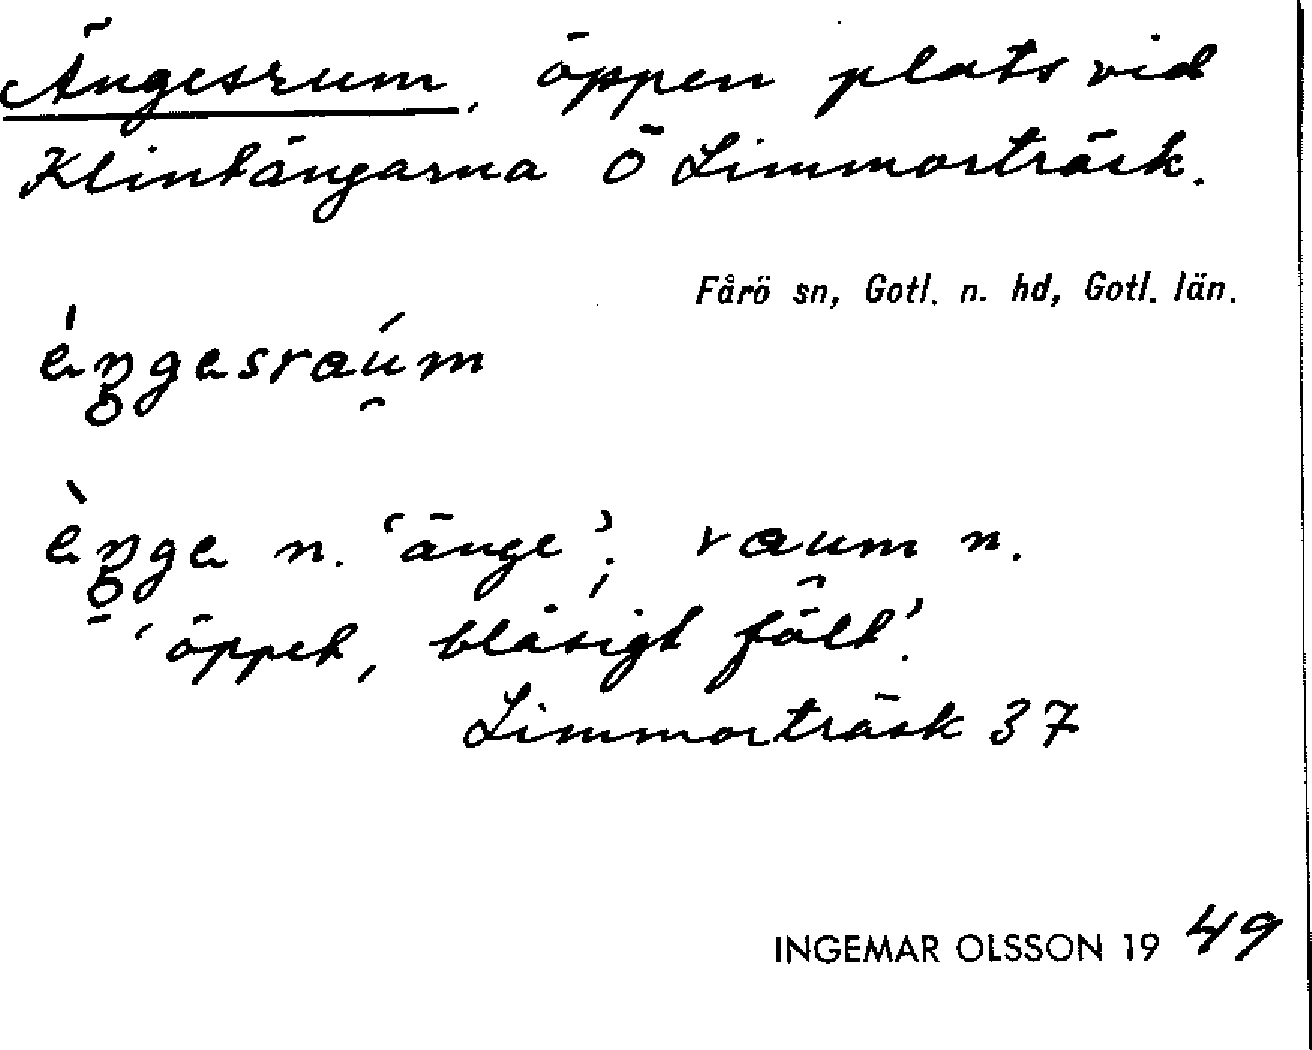 Ängesrum, öppen plats vid
Klintängarna Ö Limmorträsk.
Fårö sn, Gotl. n. hd, Gotl. län.
éŋgesraúm
èŋge n. 'änge'; raum n.
'öppet, blåsigt fält'.
Limmorträsk 37
INGEMAR OLSSON 1949